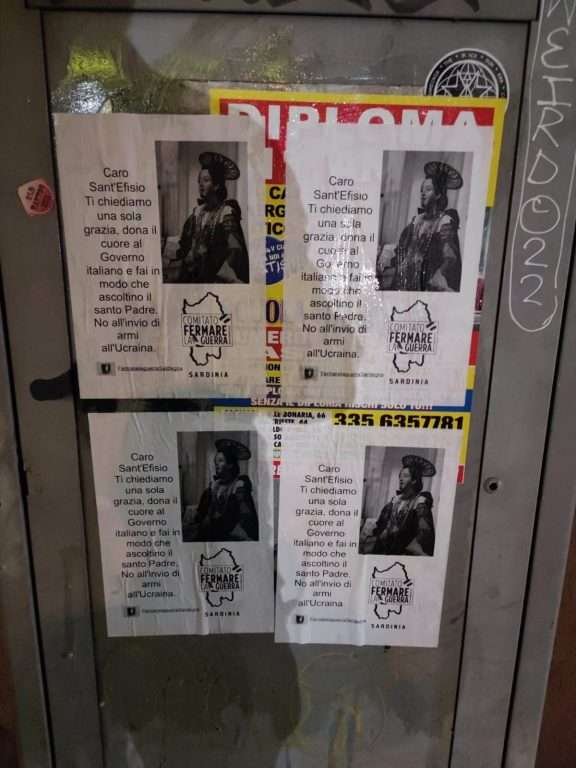 DIPLOMA
Caro
Sant'Efisio
Ti chiediamo
una sola
grazia, dona il
cuore al
Governo
italiano e fai in
modo che
ascoltino il
santo Padre.
No all'invio di
armi
all'Ucraina.
COMITATO
FERMARE
LA GUERRA
SARDINIA
Caro
Sant'Efisio
Ti chiediamo
una sola
grazia, dona il
cuore al
Governo
italiano e fai in
modo che
ascoltino il
santo Padre.
No all'invio di
armi
all'Ucraina.
COMITATO
FERMARE
LA GUERRA
SARDINIA
SENZA IL DIPLOMA RISCHI SOLO TU!!!
335 6357781
Caro
Sant'Efisio
Ti chiediamo
una sola
grazia, dona il
cuore al
Governo
italiano e fai in
modo che
ascoltino il
santo Padre.
No all'invio di
armi
all'Ucraina.
COMITATO
FERMARE
LA GUERRA
SARDINIA
Caro
Sant'Efisio
Ti chiediamo
una sola
grazia, dona il
cuore al
Governo
italiano e fai in
modo che
ascoltino il
santo Padre.
No all'invio di
armi
all'Ucraina
COMITATO
FERMARE
LA GUERRA
SARDINIA